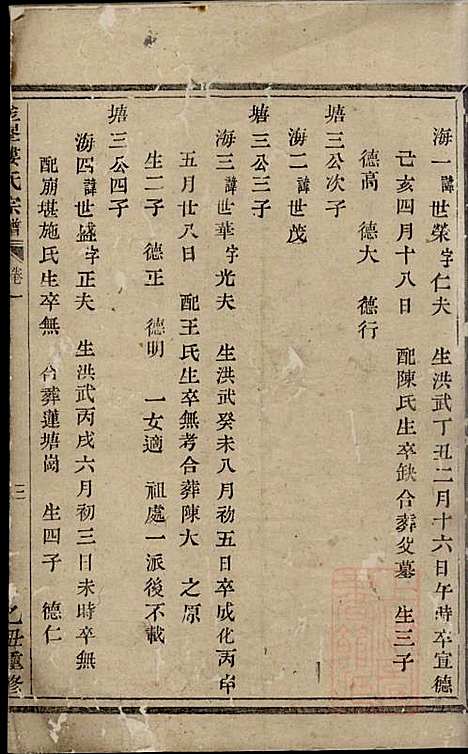 海一諱世榮字仁夫　生洪武丁丑二月十六日午時卒宣德
己亥四月十八日　配陳氏生卒缺合葬父墓　生三子
德高　德大　德行
塘三公次子
海二諱世茂
塘三公三子
海三諱世華字光夫　生洪武癸未八月初五日卒成化丙申
五月廿八日　配王氏生卒無考合葬陳大　之原
生二子　德正　德明　一女適　祖處一派後不載
塘三公四子
海四諱世盛字正夫　生洪武丙戌六月初三日未時卒無
配崩堪施氏生卒無　合葬蓮塘崗　生四子　德仁
婁氏宗譜　卷一　三　乙丑重修